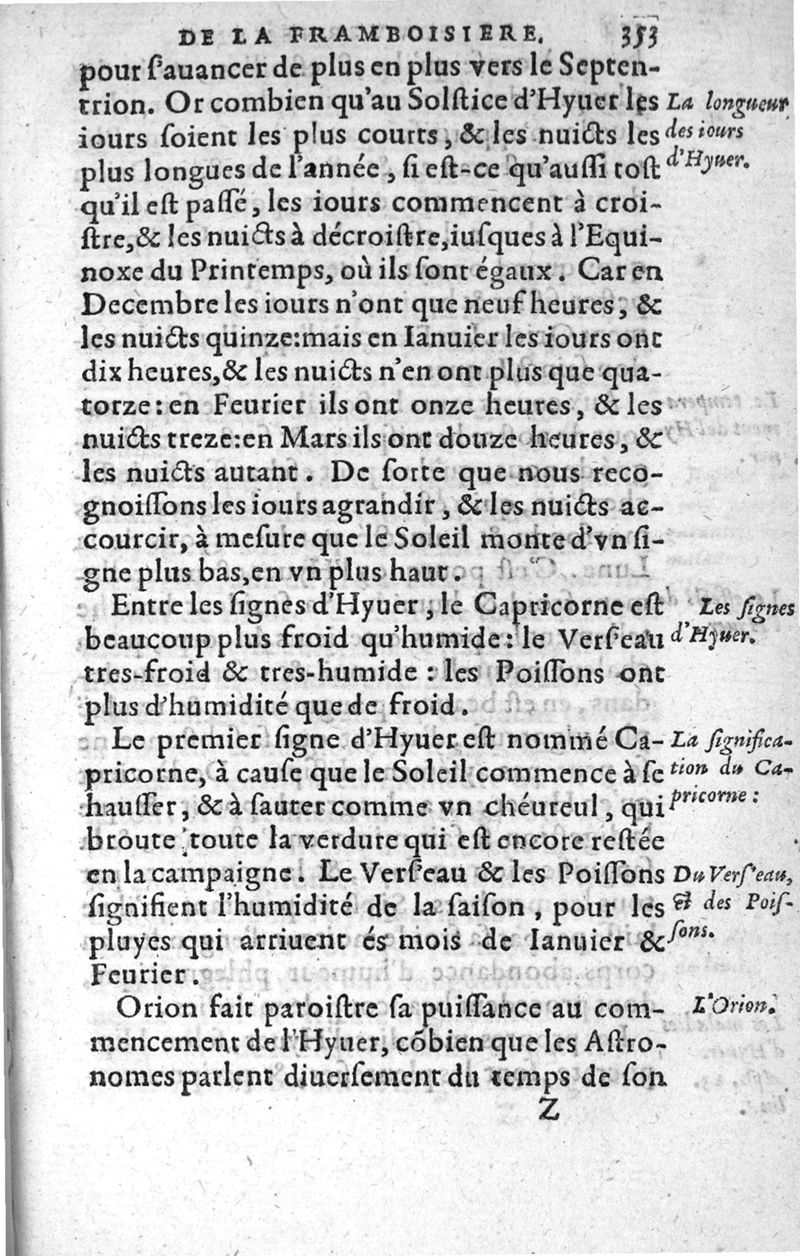 DE LA FRAMBOISIERE. 353
pour ſ'auancer de plus en plus vers le Septen-
trion. Or combien qu'au Solſtice d'Hyuer les
iours ſoient les plus courts, & les nuicts les
plus longues de l'année, ſi eſt-ce qu'auſſi toſt
qu'il eſt paſſé, les iours commencent à croi-
ſtre, & les nuicts à décroiſtre, iuſques à l'Equi-
noxe du Printemps, où ils ſont égaux. Car en
Decembre les iours n'ont que neuf heures, &
les nuicts quinze: mais en Ianuier les iours ont
dix heures, & les nuicts n'en ont plus que qua-
torze: en Feurier ils ont onze heures, & les
nuicts treze: en Mars ils ont douze heures, &
les nuicts autant. De ſorte que nous reco-
gnoiſſons les iours agrandir, & les nuicts ac-
courcir, à meſure que le Soleil monte d'vn ſi-
gne plus bas, en vn plus haut.
Entre les ſignes d'Hyuer, le Capricorne eſt
beaucoup plus froid qu'humide: le Verſeau
tres-froid & tres-humide: les Poiſſons ont
plus d'humidité que de froid.
Le premier ſigne d'Hyuer eſt nommé Ca-
pricorne, à cauſe que le Soleil commence à ſe
hauſſer, & à ſauter comme vn chéureul, qui
broute toute la verdure qui eſt encore reſtée
en la campaigne. Le Verſ'eau & les Poiſſons
ſignifient l'humidité de la ſaiſon, pour les
pluyes qui arriuent és mois de Ianuier &
Feurier.
Orion fait paroiſtre ſa puiſſance au com-
mencement de l'Hyuer, cõbien que les Aſtro-
nomes parlent diuerſement du temps de ſon
Z
La longueur
des iours
d'Hyuer.
Les ſignes
d'Hyuer.
La ſignifica-
tion du Ca-
pricorne:
Du Verſ'eau,
& des Poiſ-
ſons.
L'Orion.